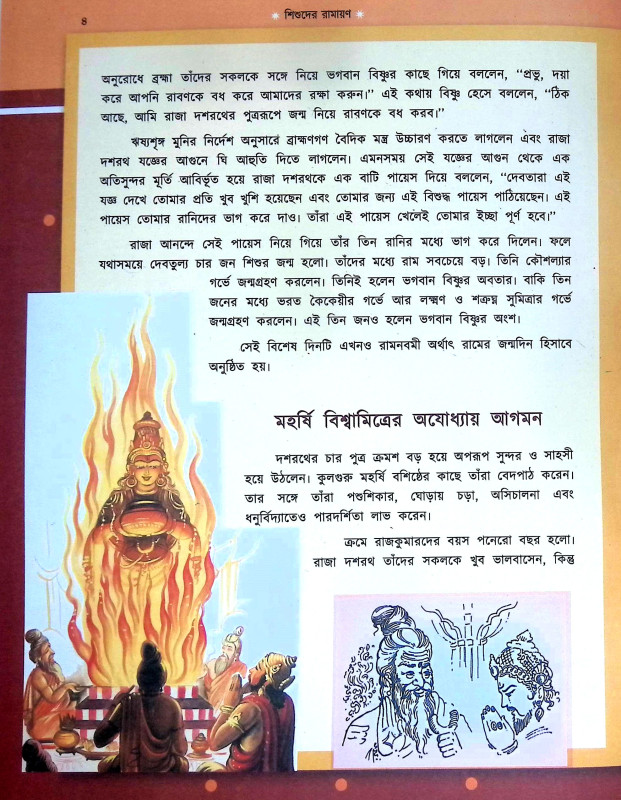 ৪
শিশুদের রামায়ণ
অনুরোধে ব্রহ্মা তাঁদের সকলকে সঙ্গে নিয়ে ভগবান বিষ্ণুর কাছে গিয়ে বললেন, “প্রভু, দয়া
করে আপনি রাবণকে বধ করে আমাদের রক্ষা করুন।” এই কথায় বিষ্ণু হেসে বললেন, “ঠিক
আছে, আমি রাজা দশরথের পুত্ররূপে জন্ম নিয়ে রাবণকে বধ করব।”
ঋষ্যশৃঙ্গ মুনির নির্দেশ অনুসারে ব্রাহ্মণগণ বৈদিক মন্ত্র উচ্চারণ করতে লাগলেন এবং রাজা
দশরথ যজ্ঞের আগুনে ঘি আহুতি দিতে লাগলেন। এমনসময় সেই যজ্ঞের আগুন থেকে এক
অতিসুন্দর মূর্তি আবির্ভূত হয়ে রাজা দশরথকে এক বাটি পায়েস দিয়ে বললেন, “দেবতারা এই
যজ্ঞ দেখে তোমার প্রতি খুব খুশি হয়েছেন এবং তোমার জন্য এই বিশুদ্ধ পায়েস পাঠিয়েছেন। এই
পায়েস তোমার রানিদের ভাগ করে দাও। তাঁরা এই পায়েস খেলেই তোমার ইচ্ছা পূর্ণ হবে।”
রাজা আনন্দে সেই পায়েস নিয়ে গিয়ে তাঁর তিন রানির মধ্যে ভাগ করে দিলেন। ফলে
যথাসময়ে দেবতুল্য চার জন শিশুর জন্ম হলো। তাঁদের মধ্যে রাম সবচেয়ে বড়। তিনি কৌশল্যার
গর্ভে জন্মগ্রহণ করলেন। তিনিই হলেন ভগবান বিষ্ণুর অবতার। বাকি তিন
জনের মধ্যে ভরত কৈকেয়ীর গর্ভে আর লক্ষ্মণ ও শত্রুঘ্ন সুমিত্রার গর্ভে
জন্মগ্রহণ করলেন। এই তিন জনও হলেন ভগবান বিষ্ণুর অংশ।
সেই বিশেষ দিনটি এখনও রামনবমী অর্থাৎ রামের জন্মদিন হিসাবে
অনুষ্ঠিত হয়।
মহর্ষি বিশ্বামিত্রের অযোধ্যায় আগমন
দশরথের চার পুত্র ক্রমশ বড় হয়ে অপরূপ সুন্দর ও সাহসী
হয়ে উঠলেন। কুলগুরু মহর্ষি বশিষ্ঠের কাছে তাঁরা বেদপাঠ করেন।
তার সঙ্গে তাঁরা পশুশিকার, ঘোড়ায় চড়া, অসিচালনা এবং
ধনুর্বিদ্যাতেও পারদর্শিতা লাভ করেন।
ক্রমে রাজকুমারদের বয়স পনেরো বছর হলো।
রাজা দশরথ তাঁদের সকলকে খুব ভালবাসেন, কিন্তু